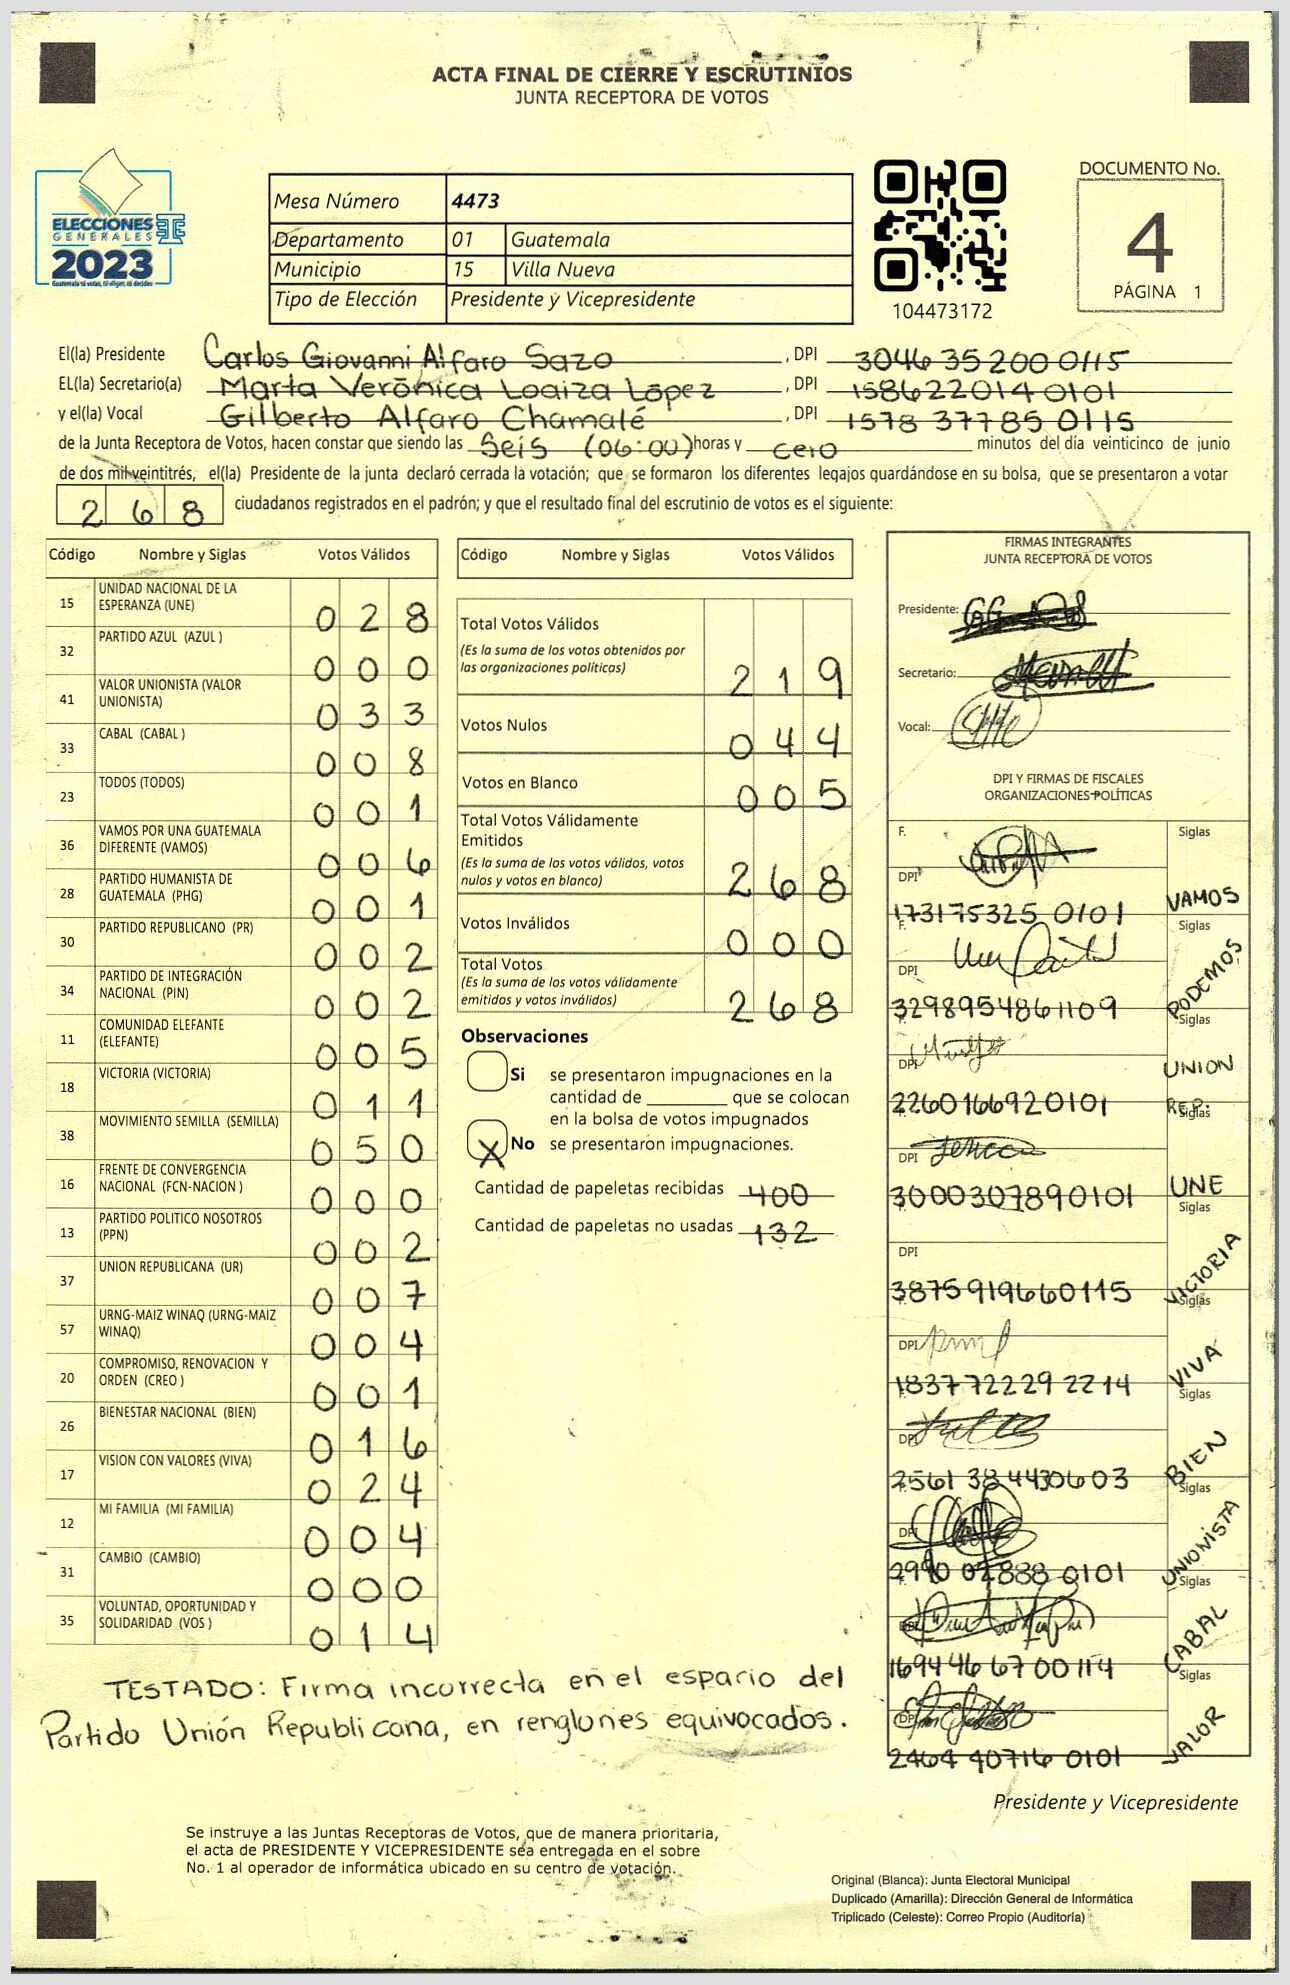 ACTA FINAL DE CIERRE Y ESCRUTINIOS
JUNTA RECEPTORA DE VOTOS
ELECCIONES
GENERALES
2023
Guatemala tú votas, tú eliges, tú decides
Mesa Número 4473
Departamento 01 Guatemala
Municipio 15 Villa Nueva
Tipo de Elección Presidente y Vicepresidente
104473172
DOCUMENTO No.
4
PÁGINA 1
El(la) Presidente Carlos Giovanni Alfaro Sazo, DPI 3046 35200 0115
EL(la) Secretario(a) Marta Verónica Loaiza López, DPI 158622014 0101
y el(la) Vocal Gilberto Alfaro Chamalé, DPI 1578 37785 0115
de la Junta Receptora de Votos, hacen constar que siendo las Seis (06:00) horas y cero minutos del día veinticinco de junio
de dos mil veintitrés, el(la) Presidente de la junta declaró cerrada la votación; que se formaron los diferentes legajos quardándose en su bolsa, que se presentaron a votar
268 ciudadanos registrados en el padrón; y que el resultado final del escrutinio de votos es el siguiente:
Código Nombre y Siglas Votos Válidos
15 UNIDAD NACIONAL DE LA ESPERANZA (UNE) 028
32 PARTIDO AZUL (AZUL ) 000
41 VALOR UNIONISTA (VALOR UNIONISTA) 033
33 CABAL (CABAL ) 008
23 TODOS (TODOS) 001
36 VAMOS POR UNA GUATEMALA DIFERENTE (VAMOS) 006
28 PARTIDO HUMANISTA DE GUATEMALA (PHG) 001
30 PARTIDO REPUBLICANO (PR) 002
34 PARTIDO DE INTEGRACIÓN NACIONAL (PIN) 002
11 COMUNIDAD ELEFANTE (ELEFANTE) 005
18 VICTORIA (VICTORIA) 011
38 MOVIMIENTO SEMILLA (SEMILLA) 050
16 FRENTE DE CONVERGENCIA NACIONAL (FCN-NACION ) 000
13 PARTIDO POLITICO NOSOTROS (PPN) 002
37 UNION REPUBLICANA (UR) 007
57 URNG-MAIZ WINAQ (URNG-MAIZ WINAQ) 004
20 COMPROMISO, RENOVACION Y ORDEN (CREO ) 001
26 BIENESTAR NACIONAL (BIEN) 016
17 VISION CON VALORES (VIVA) 024
12 MI FAMILIA (MI FAMILIA) 004
31 CAMBIO (CAMBIO) 000
35 VOLUNTAD, OPORTUNIDAD Y SOLIDARIDAD (VOS ) 014
Código Nombre y Siglas Votos Válidos
Total Votos Válidos 219
(Es la suma de los votos obtenidos por
las organizaciones políticas)
Votos Nulos 044
Votos en Blanco 005
Total Votos Válidamente
Emitidos 268
(Es la suma de los votos válidos, votos
nulos y votos en blanco)
Votos Inválidos 000
Total Votos 268
(Es la suma de los votos válidamente
emitidos y votos inválidos)
Observaciones
Si se presentaron impugnaciones en la
cantidad de ________ que se colocan
en la bolsa de votos impugnados
X No se presentarón impugnaciones.
Cantidad de papeletas recibidas 400
Cantidad de papeletas no usadas 132
FIRMAS INTEGRANTES
JUNTA RECEPTORA DE VOTOS
Presidente:
Secretario:
Vocal:
DPI Y FIRMAS DE FISCALES
ORGANIZACIONES POLÍTICAS
F. Siglas
DPI 173175325 0101 VAMOS
F. Siglas
DPI 3298954861109 PODEMOS
Siglas
DPI 2260166920101 UNION REP.
Siglas
DPI 3000307890101 UNE
Siglas
DPI 3875919660115 VICTORIA
Siglas
DPI 183772229 2214 VIVA
Siglas
DPI 2561 38 4430603 BIEN
Siglas
DPI 2990 02888 0101 UNIONISTA
Siglas
DPI 1694 46 67 00114 CABAL
Siglas
DPI 2464 40716 0101 VALOR
TESTADO: Firma incorrecta en el espario del
Partido Unión Republicana, en renglones equivocados.
Presidente y Vicepresidente
Se instruye a las Juntas Receptoras de Votos, que de manera prioritaria,
el acta de PRESIDENTE Y VICEPRESIDENTE sea entregada en el sobre
No. 1 al operador de informática ubicado en su centro de votación.
Original (Blanca): Junta Electoral Municipal
Duplicado (Amarilla): Dirección General de Informática
Triplicado (Celeste): Correo Propio (Auditoría)